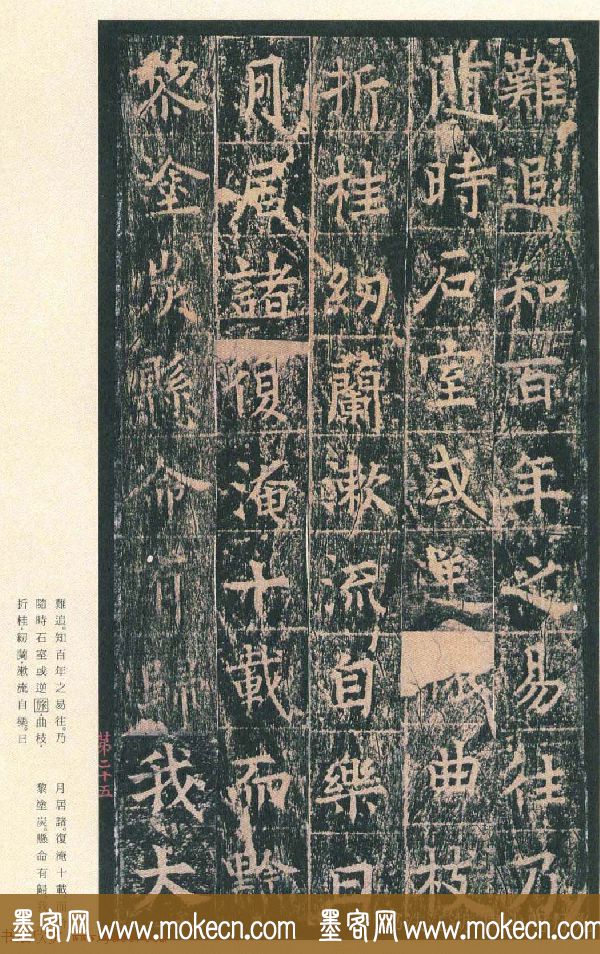 難追知百年之易往乃
隨時石室或單曲枝
折桂紉蘭漱流自樂日
月居諸復淹十載而黔
黎塗炭縣命我大
第二十五
難追。知百年之易往。乃
隨時石室或逆旅曲枝。
折桂。紉蘭。漱流自樂。日
月居諸。復淹十載而
黎塗炭。懸命有歸我
墨客网 www.mokecn.com 墨客网 www.mokecn.com